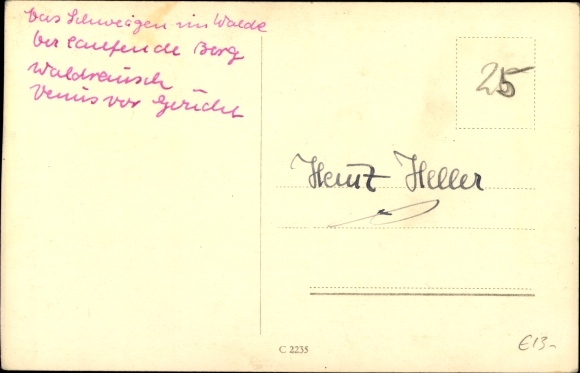 Das Schweigen im Walde
Der laufende Berg
Waldrausch
Venus vor Gericht
25
Heinz Heller
C 2235
€13-